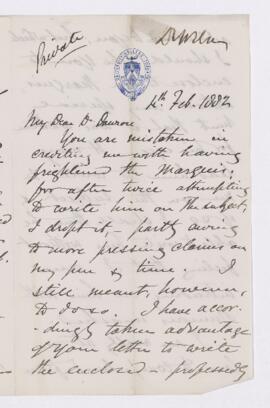 Private
4th Feb. 1882
My Dear Dr Dawson
You are mistaken in
crediting me with having
frightened the Marquis,
for after twice attempting
to write him on the subject,
I dropt it, - partly owing
to more pressing claims on
my pen & time. I
still meant, however,
to do so. I have accor-
dingly taken advantage
of your letter to write
the enclosed - professedly